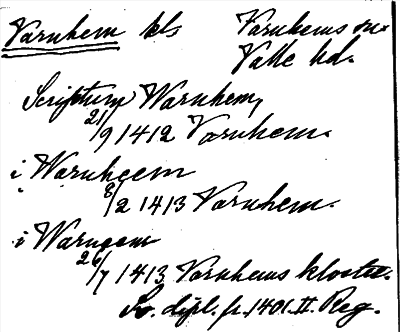 Varnhem kls Varnhems sn.
Valle hd.
Scriptum Warnhem,
21/9 1412 Varnhem.
i Warnheem
8/2 1413 Varnhem.
i
26/7 1413 Varnhems kloster.
Sv. dipl. fr. 1401. II. Reg.